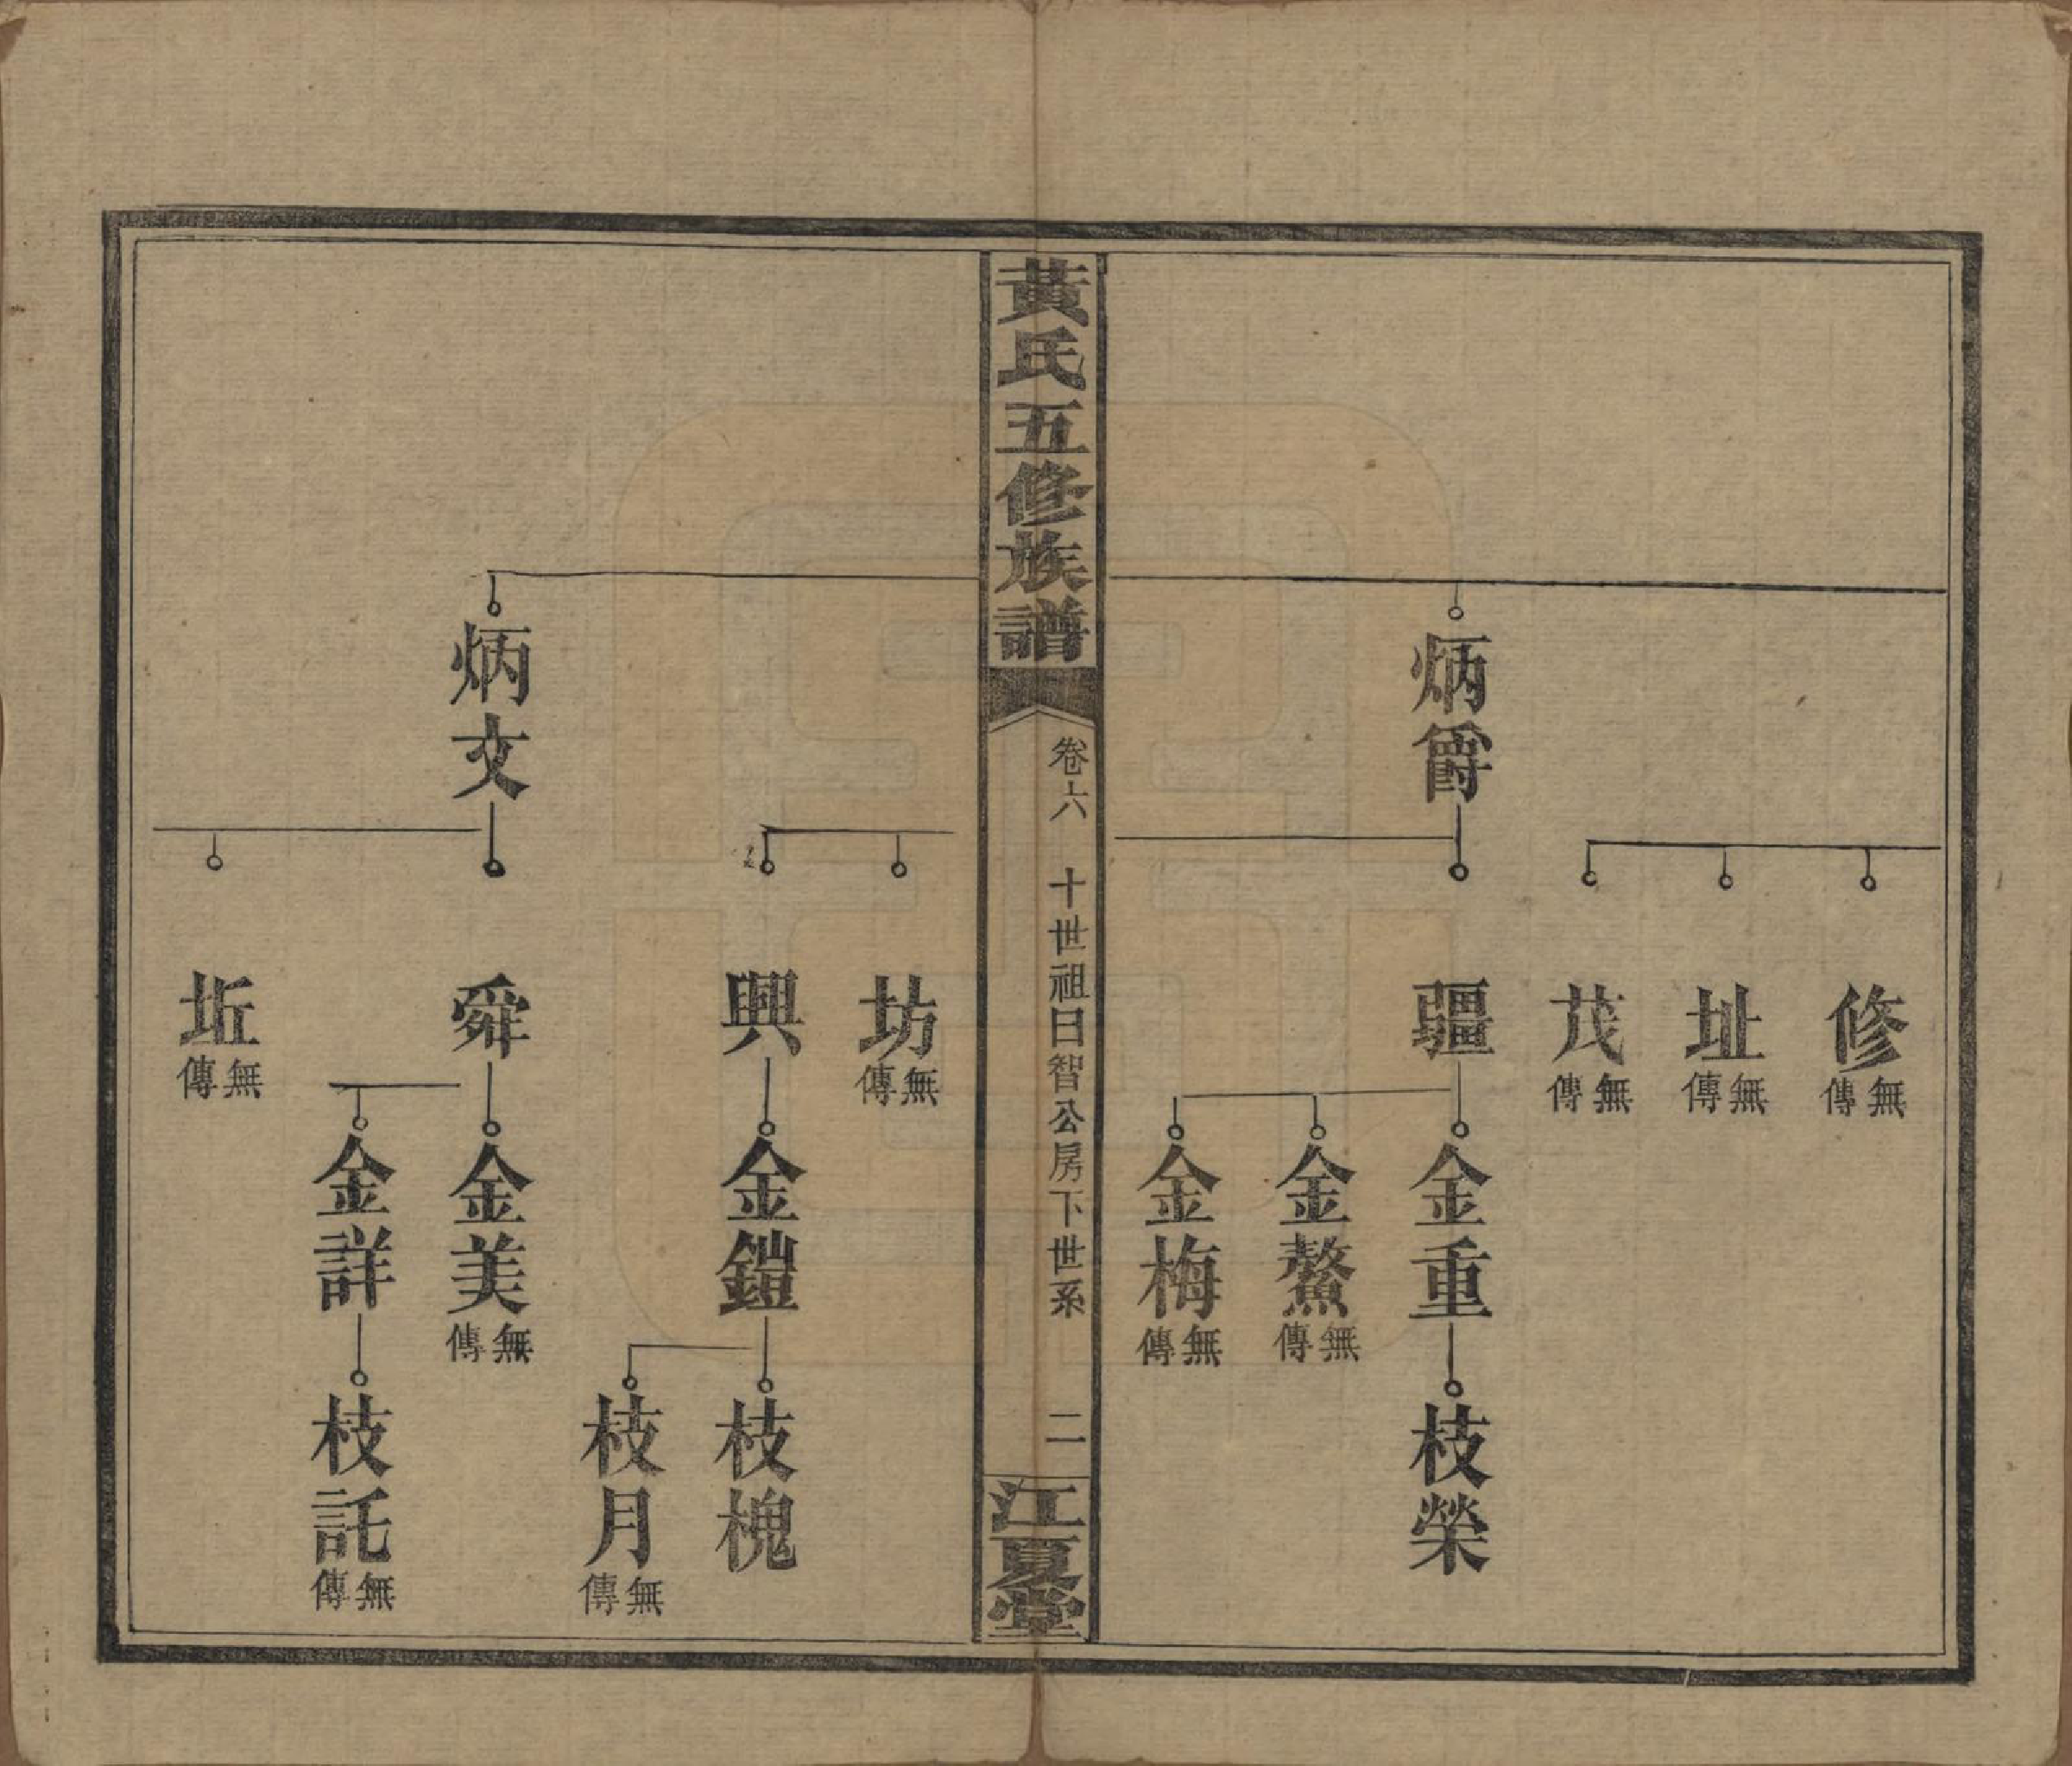 修
無傳
址
無傳
茂
無傳
炳爵
疆
金重
枝榮
金鰲
無傳
金梅
無傳
黃氏五修族譜
卷六
十世祖日智公房下世系
二
江夏堂
坊
無傳
興
金鎧
枝槐
枝月
無傳
炳文
舜
金美
無傳
金詳
枝託
無傳
坵
無傳